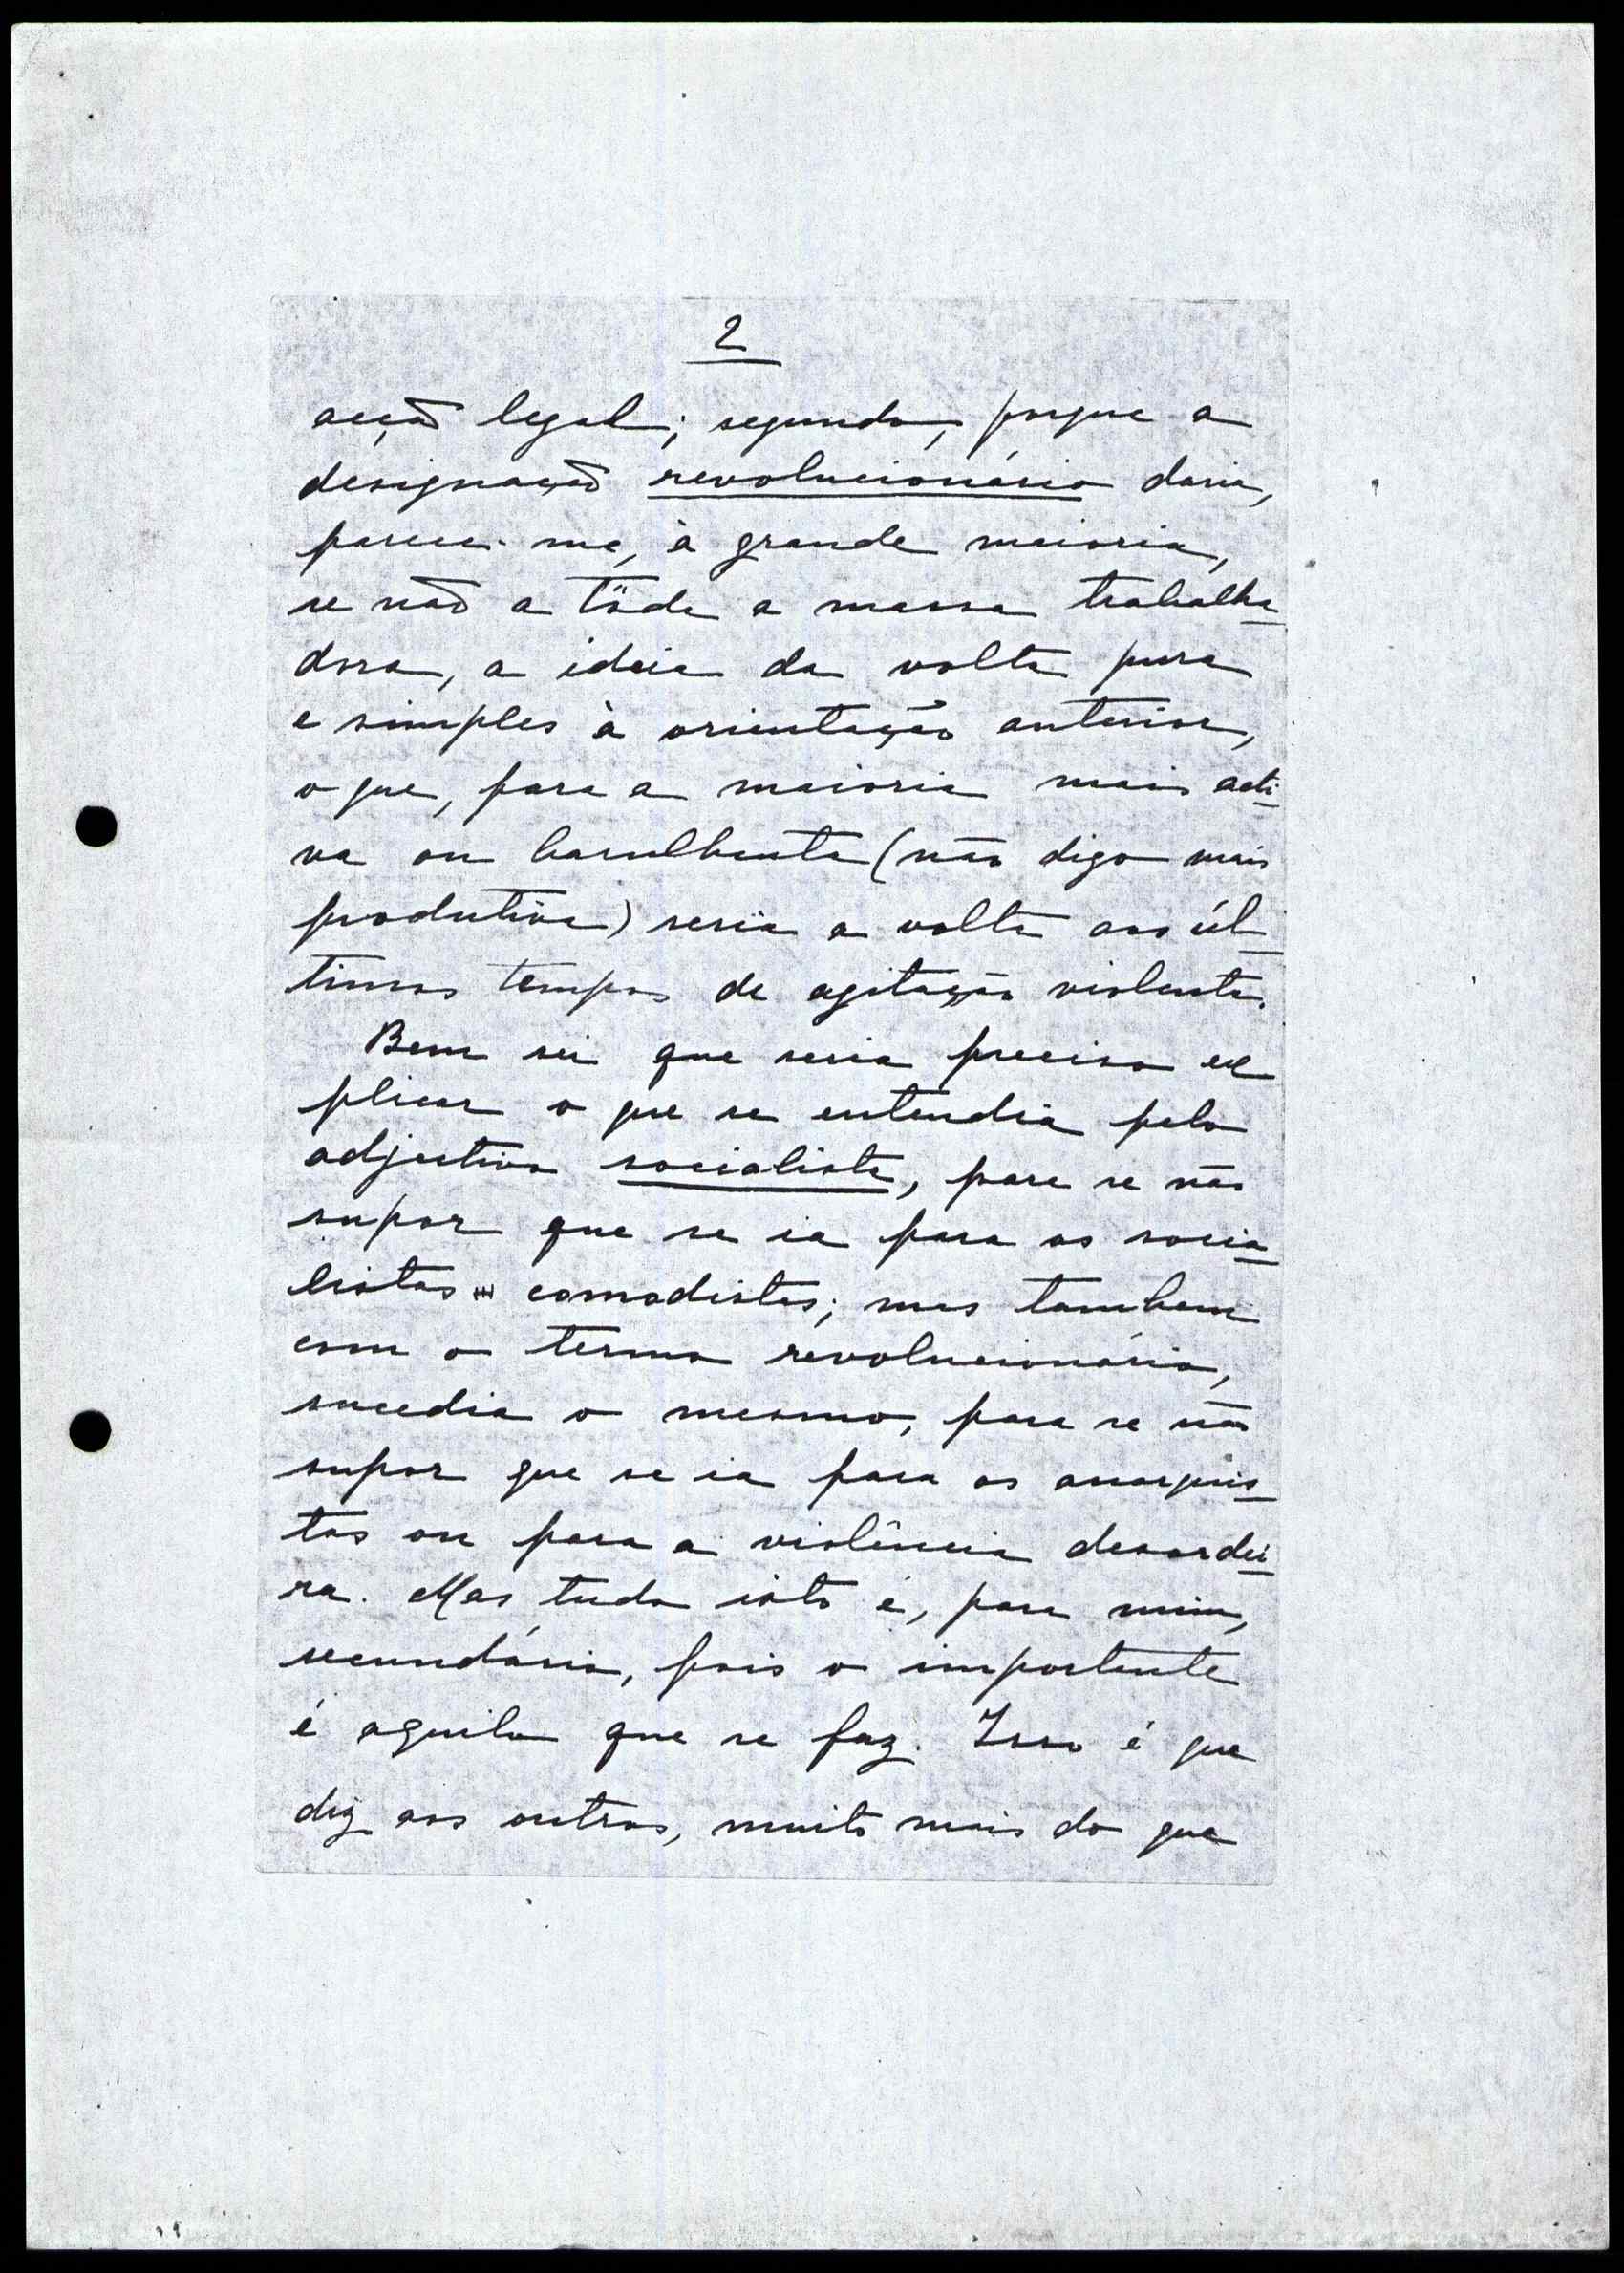 2
acção legal; segundo, porque a
designação revolucionário daria,
parece-me, à grande maioria,
se não a tôda a massa trabalha-
dora, a ideia da volta pura
e simples à orientação anterior,
o que, para a maioria mais acti-
va ou barulhenta (não digo mais
produtiva) seria a volta aos úl-
timos tempos de agitação violenta.
Bem sei que seria preciso ex-
plicar o que se entendia pelo
adjectivo socialista, para se não
supor que se ia para os socia-
listas comodistas; mas tambem
com o termo revolucionário,
sucedia o mesmo, para se não
supor que se ia para os anarquis-
tas ou para a violência desordei-
ra. Mas tudo isto é, para mim,
secundário, pois o importante
é aquilo que se faz. Isso é que
diz aos outros, muito mais do que